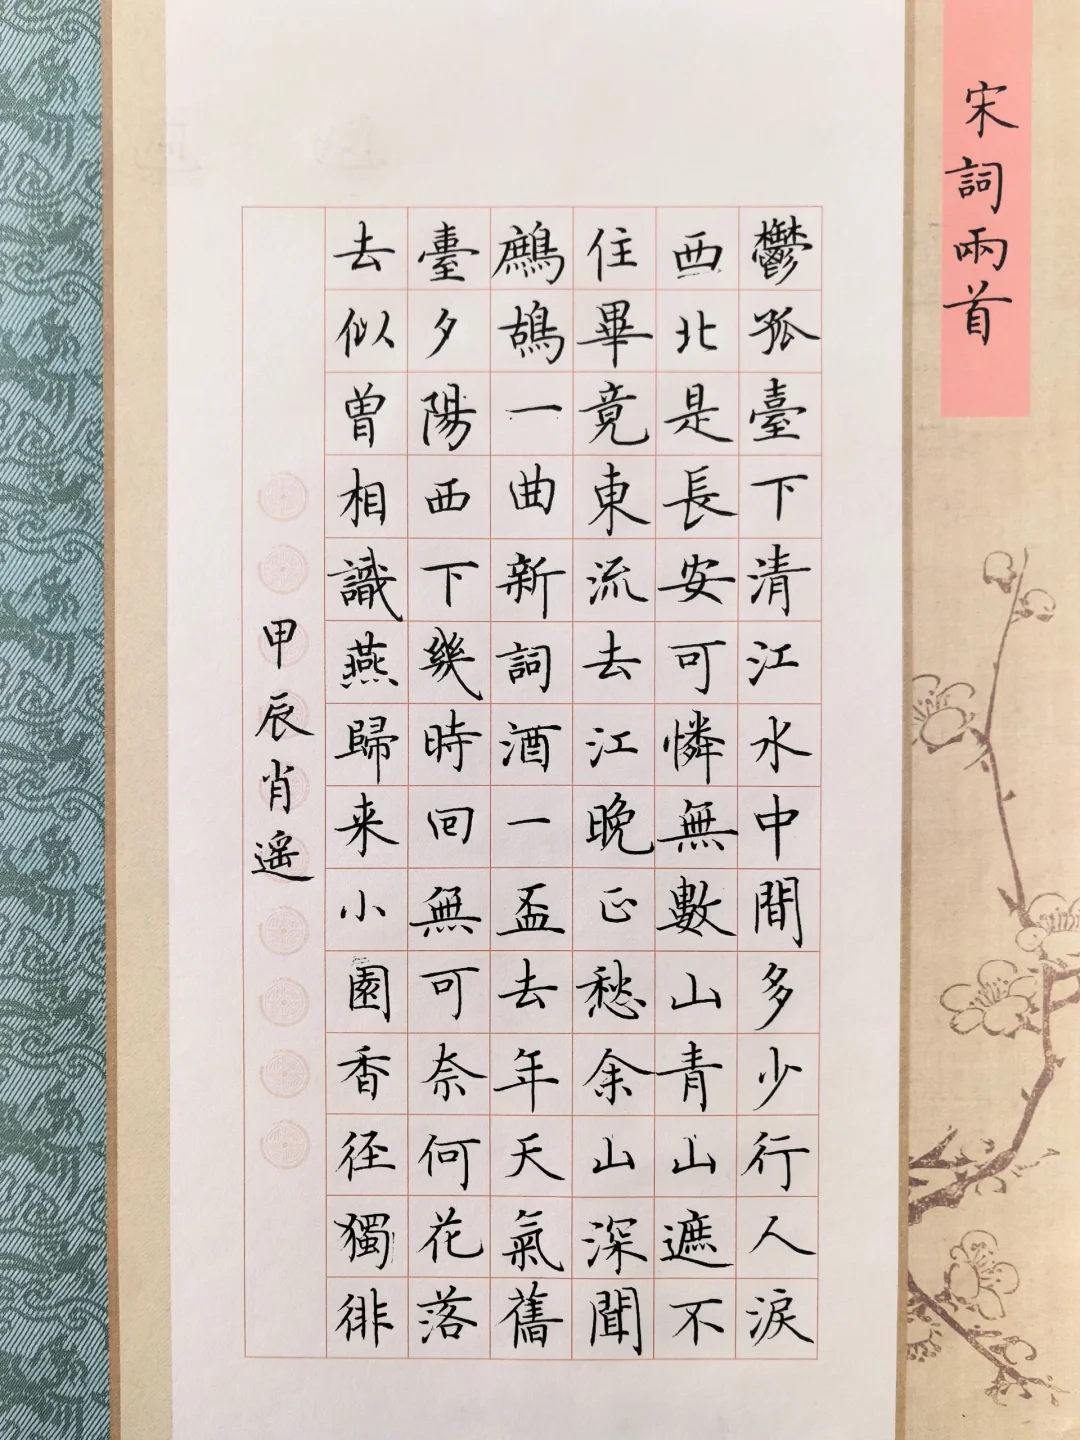 宋詞兩首
鬱孤臺下清江水中間多少行人淚
西北是長安可憐無數山青山遮不
住畢竟東流去江晚正愁余山深聞
鷓鴣一曲新詞酒一盃去年天氣舊
臺夕陽西下幾時回無可奈何花落
去似曾相識燕歸来小園香徑獨徘
甲辰肖遥